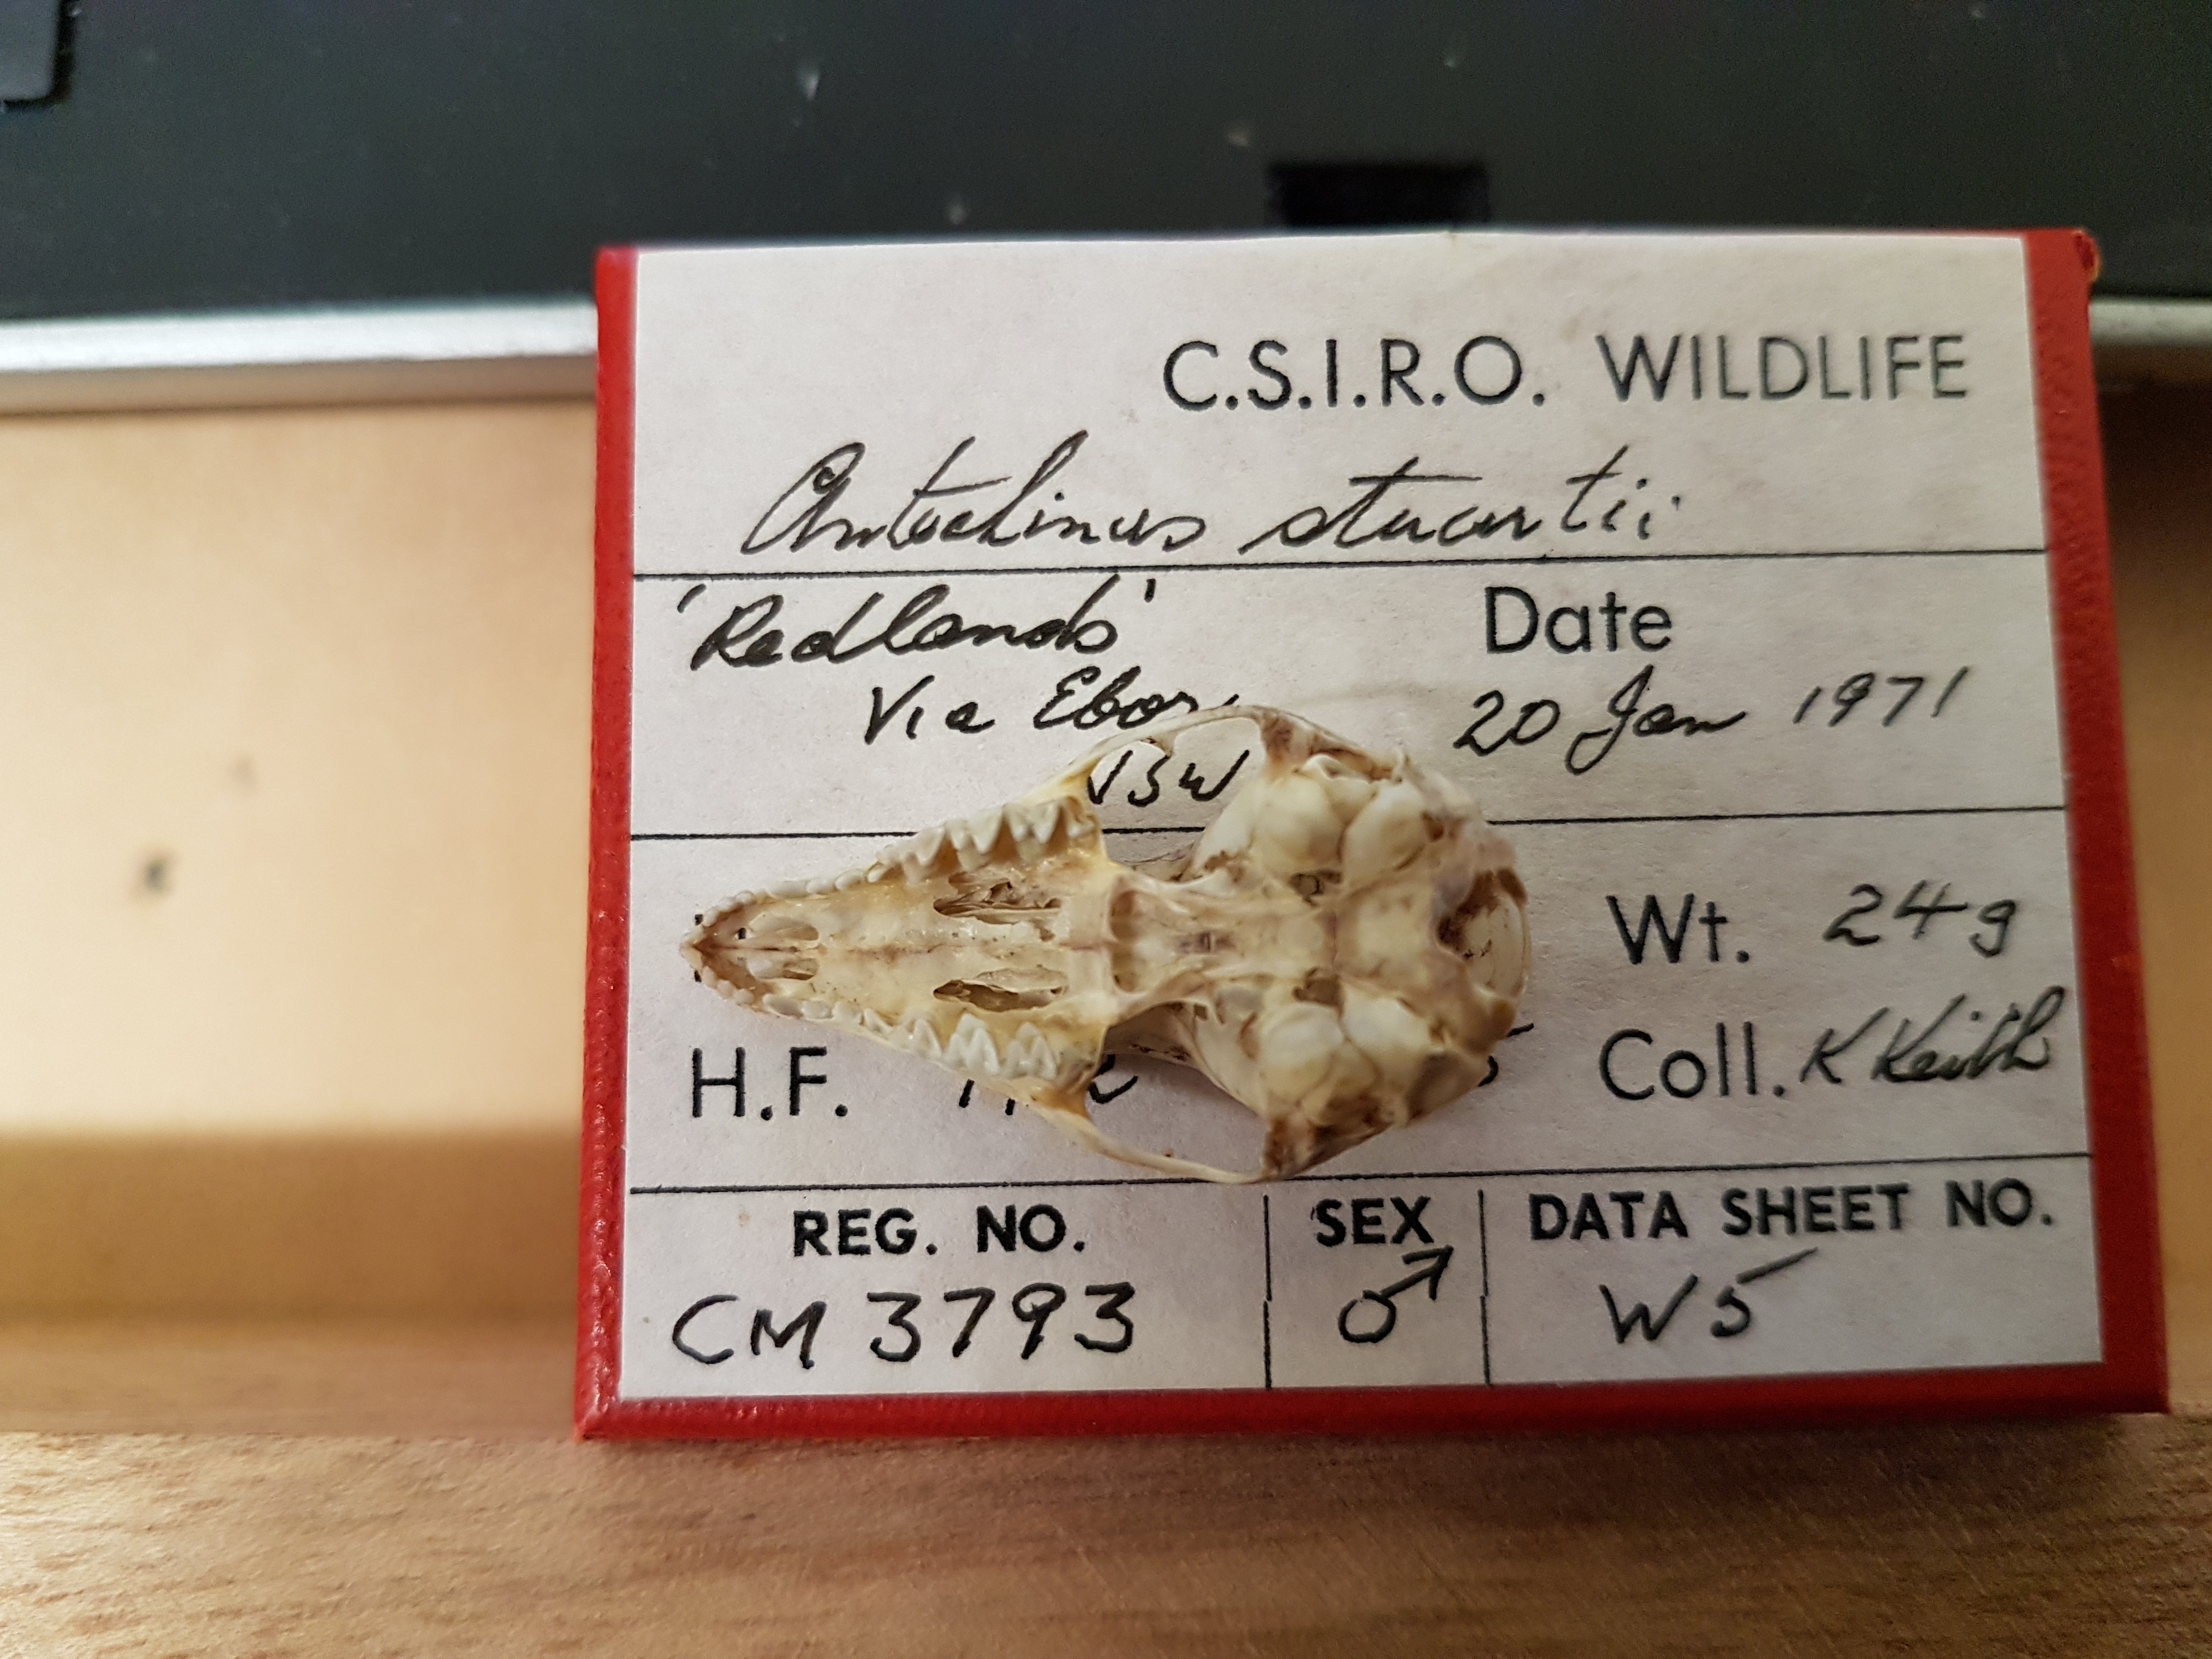 C.S.I.R.O. WILDLIFE
Antechinus stuartii
Date
Via Ebor,
20 Jan 1971
NSW
Wt. 24g
H.F.
Coll. K Keith
REG. NO. SEX DATA SHEET NO.
CM 3793 ♂ W5